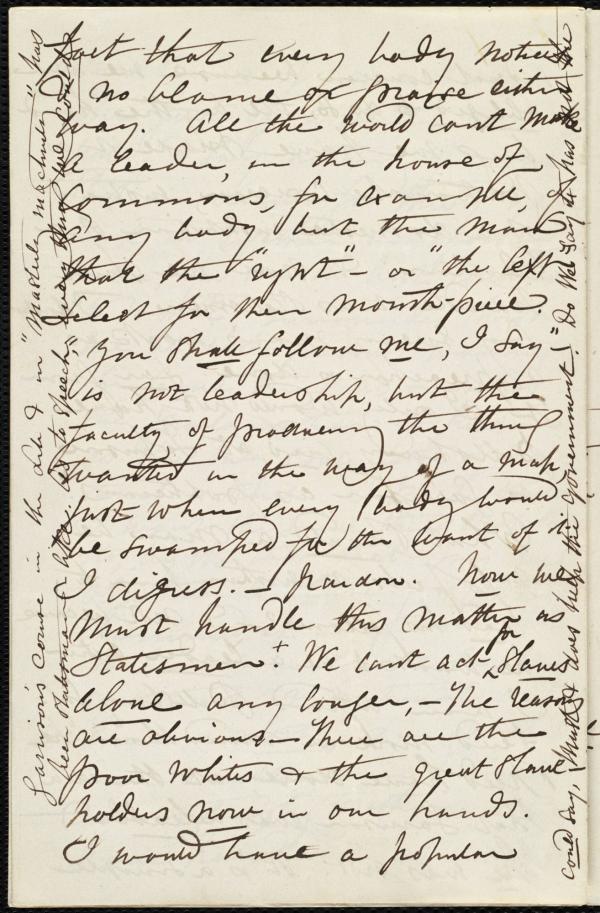 fact that every body notices
no blame or praise either
way. All the world can't make
a leader, in the house of
Commons, for example, of
any body but the man
that the "right" – or "the left
select for their mouth-piece.
"You shall follow me, I say" –
is not leadership, but the
faculty of producing the thing
wanted in the way of a map,
just when every body would
be swamped for the want of it
I digress. – pardon. Now we
must handle this matter as
Statesmen.+ We cant act for Slaves
alone any longer, – The reasons
are obvious – There are the
poor whites & the great Slave-
holders now in our hands.
I would have a popular
Garrison's course in the Lib & in "Masterly machinery" has
been Statesman like, as to speech, every thing we could
could say, must & does help the government. Do we say it has